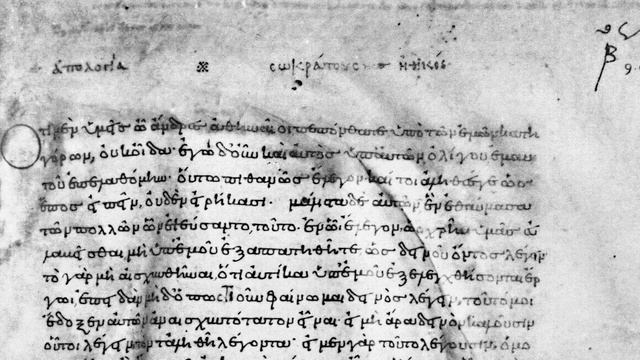 ἀπολογία ※ σωκράτους ἢ ἠθικός
τι μὲν ὑμεῖς ὦ ἄνδρες ἀθηναῖοι πεπόνθατε ὑπὸ τῶν ἐμῶν κατη
γόρων, οὐκ οἶδα· ἐγὼ δ' οὖν καὶ αὐτὸς ὑπ' αὐτῶν ὀλίγου ἐμαυ
τοῦ ἐπελαθόμην· οὕτω πιθανῶς ἔλεγον· καί τοι ἀληθές γε ὡς
ἔπος εἰπεῖν, οὐδὲν εἰρήκασι. μάλιστα δὲ αὐτῶν ἓν ἐθαύμασα
τῶν πολλῶν ὧν ἐψεύσαντο, τοῦτο ἐν ᾧ ἔλεγον, ὡς χρῆν ὑμᾶς εὐ
λαβεῖσθαι μὴ ὑπ' ἐμοῦ ἐξαπατηθῆτε, ὡς δεινοῦ ὄντος λέγειν
τὸ γὰρ μὴ αἰσχυνθῆναι, ὅτι αὐτίκα ὑπ' ἐμοῦ ἐξελεγχθήσονται ἔρ
γωι, ἐπειδὰν μηδ' ὁπωστιοῦν φαίνωμαι δεινὸς λέγειν, τοῦτό μοι
ἔδοξεν αὐτῶν ἀναισχυντότατον εἶναι· εἰ μὴ ἄρα δεινὸν καλοῦσιν
οὗτοι λέγειν τὸν τἀληθῆ λέγοντα· εἰ μὲν γὰρ τοῦτο λέγουσιν, ὁμο